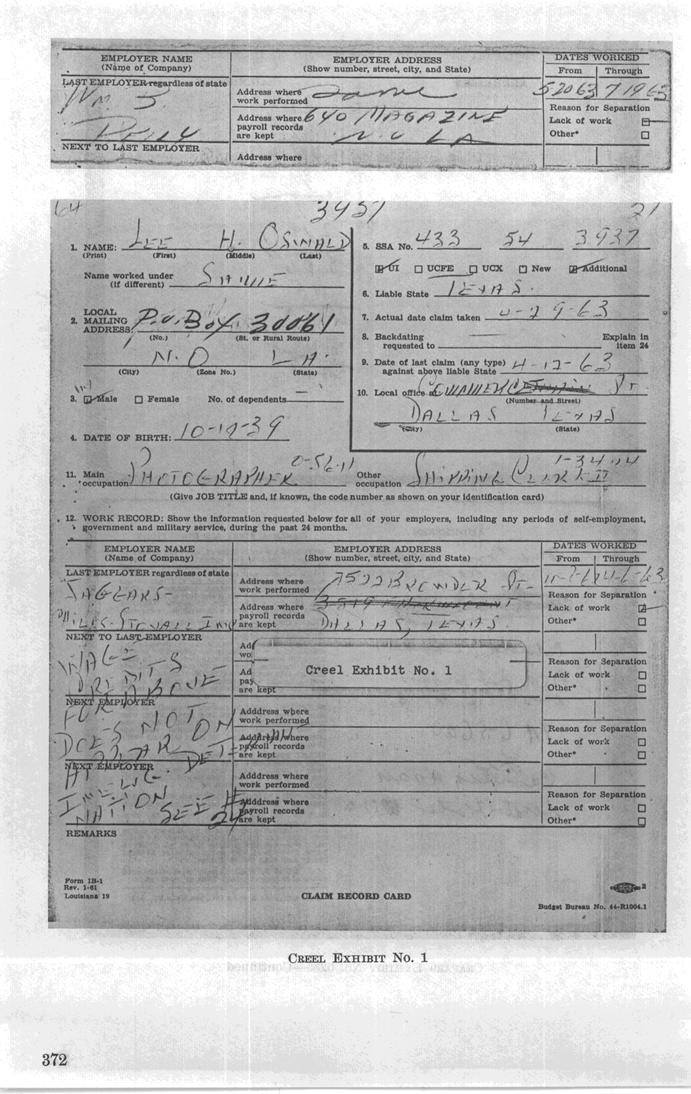 EMPLOYER NAME
(Name of Company)
EMPLOYER ADDRESS
(Show number, street, city, and State)
DATES WORKED
From Through
LAST EMPLOYER regardless of state
Wm B
Address where
work performed
Same
5 20 63 7 19 63
Reason for Separation
Lack of work
Other*
Address where
payroll records
are kept
640 MAGAZINE
N O LA
NEXT TO LAST EMPLOYER
Address where
64 3457 21
1. NAME: LEE H. OSWALD
(Print) (First) (Middle) (Last)
Name worked under
(if different) SAME
2. LOCAL
MAILING
ADDRESS: P.O. Box 30061
(No.) (St. or Rural Route)
N.O LA.
(City) (Zone No.) (State)
3. Male Female No. of dependents
4. DATE OF BIRTH: 10-18-39
5. SSA No. 433 54 3937
UI UCFE UCX New Additional
6. Liable State TEXAS.
7. Actual date claim taken 4-29-63
8. Backdating Explain in
requested to item 24
9. Date of last claim (any type) 4-12-63
against above liable State
10. Local office at St.
(Number and Street)
DALLAS TEXAS
(City) (State)
11. Main
occupation PHOTOGRAPHER
Other
occupation SHIPPING CLERK II
(Give JOB TITLE and, if known, the code number as shown on your identification card)
12. WORK RECORD: Show the information requested below for all of your employers, including any periods of self-employment,
government and military service, during the past 24 months.
EMPLOYER NAME
(Name of Company)
EMPLOYER ADDRESS
(Show number, street, city, and State)
DATES WORKED
From Through
LAST EMPLOYER regardless of state
JAGGARS-
CHILES-STOVALL INC
Address where
work performed
7522 BROWDER ST-
Address where
payroll records
are kept
DALLAS, TEXAS
4-6-63
Reason for Separation
Lack of work
Other*
NEXT TO LAST EMPLOYER
Ad
wo
Ad
pay
are kept
Creel Exhibit No. 1
Reason for Separation
Lack of work
Other*
NEXT EMPLOYER
Adddress where
work performed
Adddress where
payroll records
are kept
Reason for Separation
Lack of work
Other*
NEXT EMPLOYER
Adddress where
work performed
Adddress where
payroll records
are kept
Reason for Separation
Lack of work
Other*
WAGE
CREDITS
FOR ABOVE
DOES NOT
APPEAR ON
DETERMI
NATION
SEE # 24
REMARKS
Form IB-1
Rev. 1-61
Louisiana 19
CLAIM RECORD CARD
2
Budget Bureau No. 44-R1004.1
CREEL EXHIBIT No. 1
372